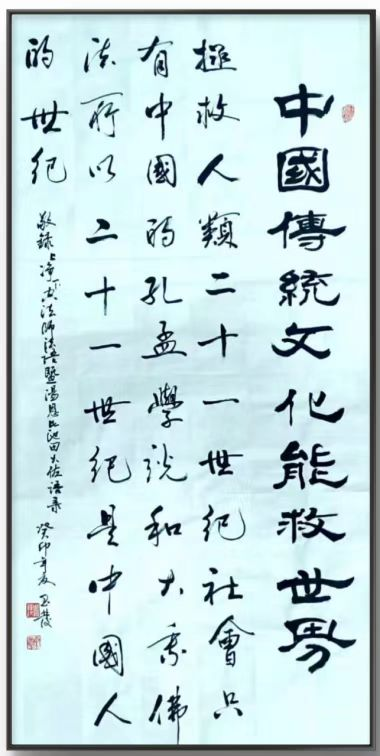 中國傳統文化能救世界
拯救人類二十一世紀社會只
有中國的孔孟學說和大乘佛
法所以二十一世紀是中國人
的世紀
敬錄上净下空法师法語暨湯恩比池田大佐語录
癸卯年夏